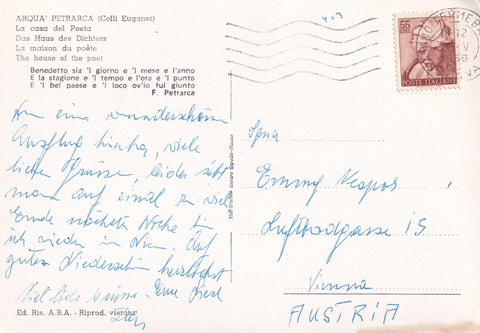 ARQUA' PETRARCA (Colli Euganei)
La casa del Poeta
Das Haus des Dichters
La maison du poête
The house of the poet
Benedetto sia 'l giorno e 'l mese e l'anno
E la stagione e 'l tempo e l'ora e 'l punto
E 'l bel paese e 'l loco ov'io fui giunto
F. Petrarca
An eine wunderschönen
Ausflug hierher, viele
liebe Grüsse, leider
man auf einmal zu viel
Ende nächste Woche bin
ich wieder in Wien. Auf
gutes Wiedersehn herzlichst
Viel liebe Grüsse Eure
Ed. Ris. A.B.A. - Riprod. vietata
55
POSTE ITALIANE
Emmy
Luftbadgasse 15
Vienna
AUSTRIA